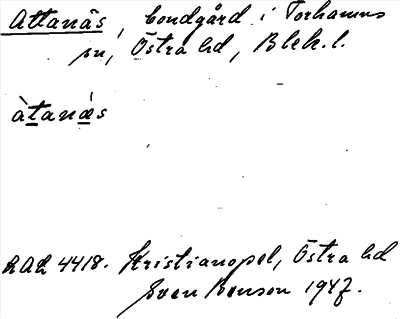 Attanäs, bondgård i Torhamns
sn, Östra hd, Blek. l.
àtanæ̀s
RAÄ 4418. Kristianopel, Östra hd
Sven Benson 1947.